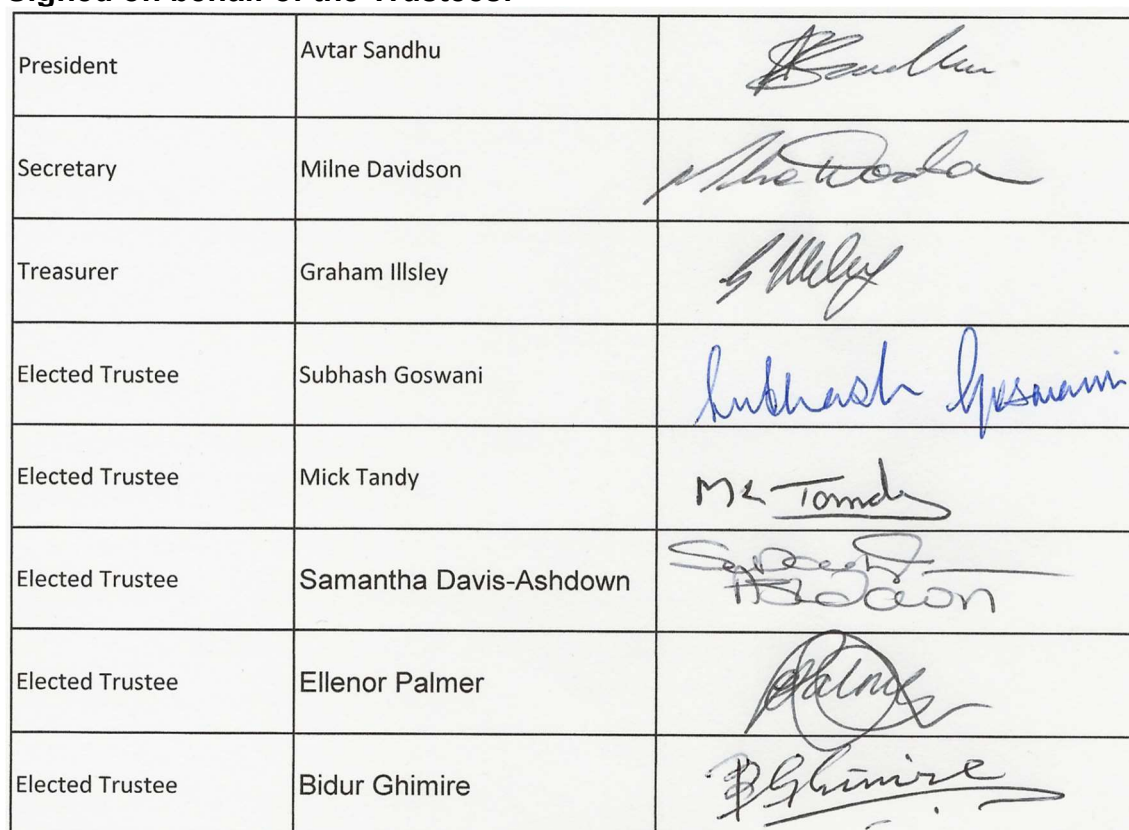 Signed on behalf of the Trustees:
President Avtar Sandhu
Secretary Milne Davidson
Treasurer Graham Illsley G Illsley
Elected Trustee Subhash Goswani Subhash Goswami
Elected Trustee Mick Tandy Tandy
Elected Trustee Samantha Davis-Ashdown
Ashdown
Elected Trustee Ellenor Palmer Palmer
Elected Trustee Bidur Ghimire B Ghimire